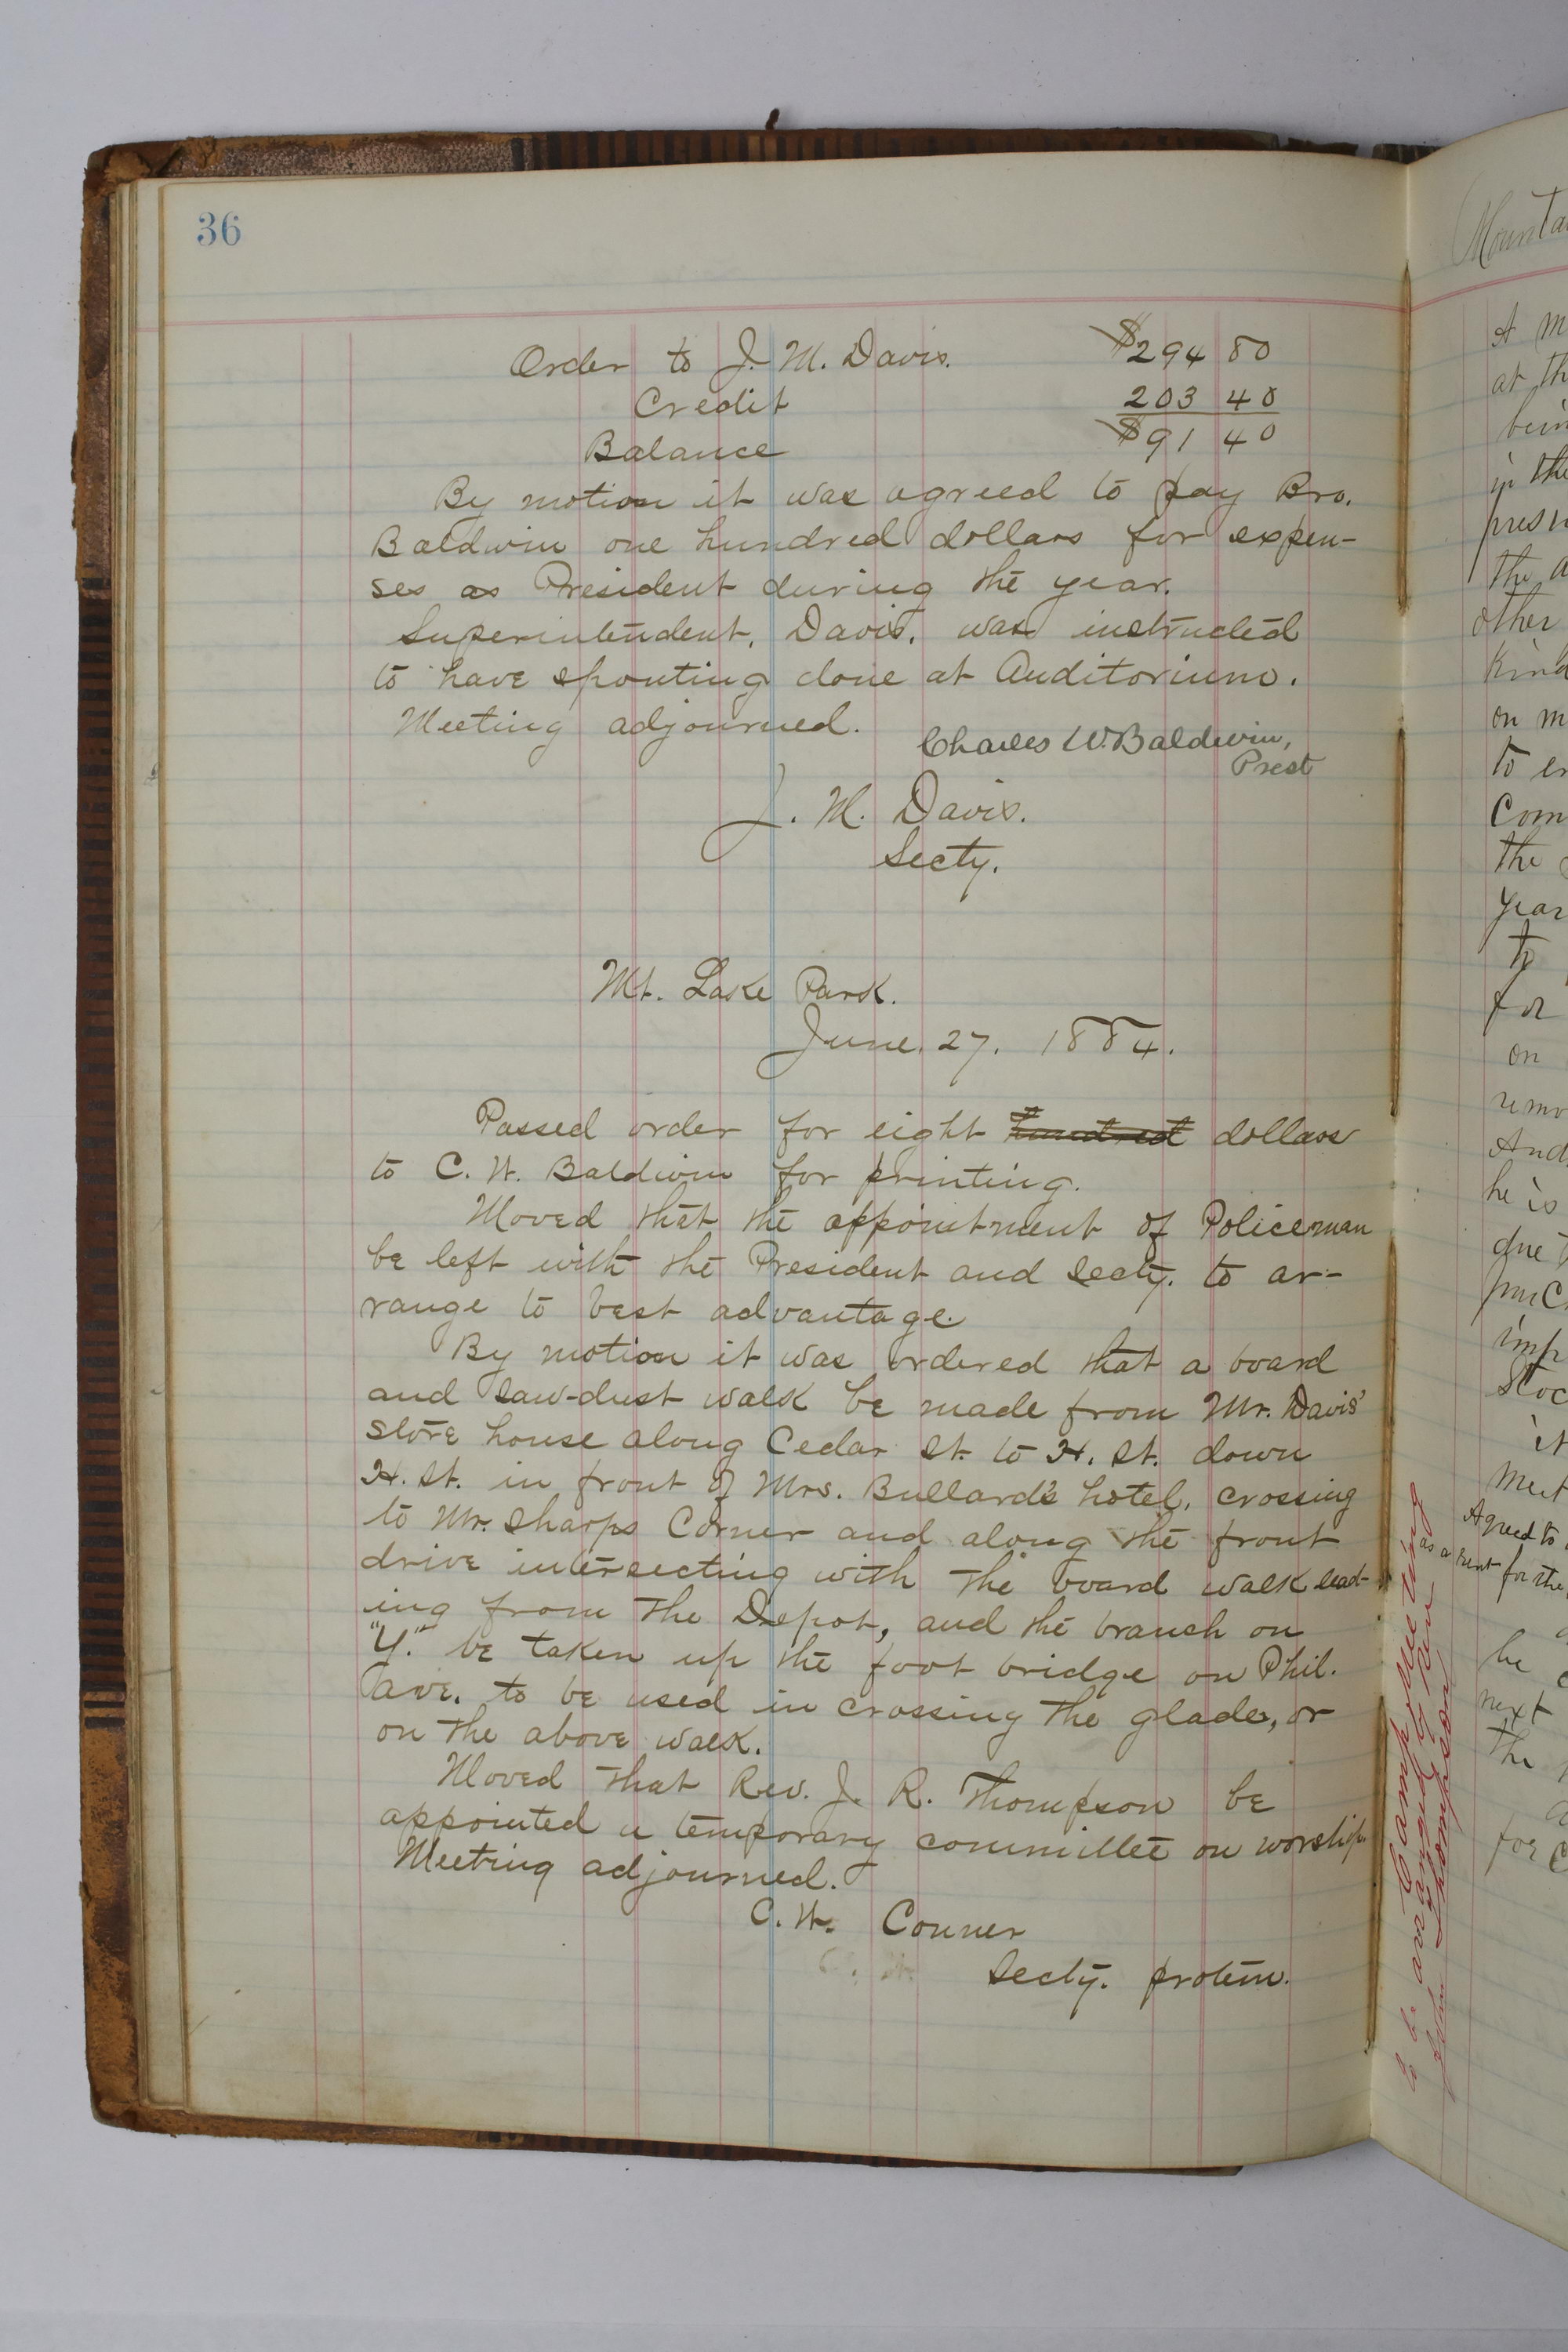 36
Order to J. M. Davis. $294 80
Credit 203 40
Balance $91 40
By motion it was agreed to pay Bro.
Baldwin one hundred dollars for expen-
ses as President during the year.
Superintendent, Davis, was instructed
to have spouting done at Auditorium.
Meeting adjourned.
Charles W. Baldwin,
Prest
J. M. Davis.
Secty.
Mt. Lake Park.
June. 27. 1884.
Passed order for eight hundred dollars
to C. W. Baldwin for printing.
Moved that the appointment of Policeman
be left with the President and Secty. to ar-
range to best advantage.
By motion it was ordered that a board
and saw-dust walk be made from Mr. Davis'
store house along Cedar St. to H. St. down
H. St. in front of Mrs. Bullard's hotel, crossing
to Mr. Sharps Corner and along the front
drive intersecting with the board walk lead-
ing from the Depot, and the branch on
"Y." be taken up the foot bridge on Phil.
ave. to be used in crossing the glade, or
on the above walk.
Moved that Rev. J. R. Thompson be
appointed a temporary committee on worship.
Meeting adjourned.
C. W. Conner
Secty. protem.
Mounta
A m
at th
bein
in the
pres
the a
other
kind
on m
to en
Com
the
year
to
for
on
remo
And
he is
due
purc
imp
Stoc
it
Meet
Agreed to
as a tent for the
he
next
the
for
Camp Meeting
to be arranged by Rev
John Thompson